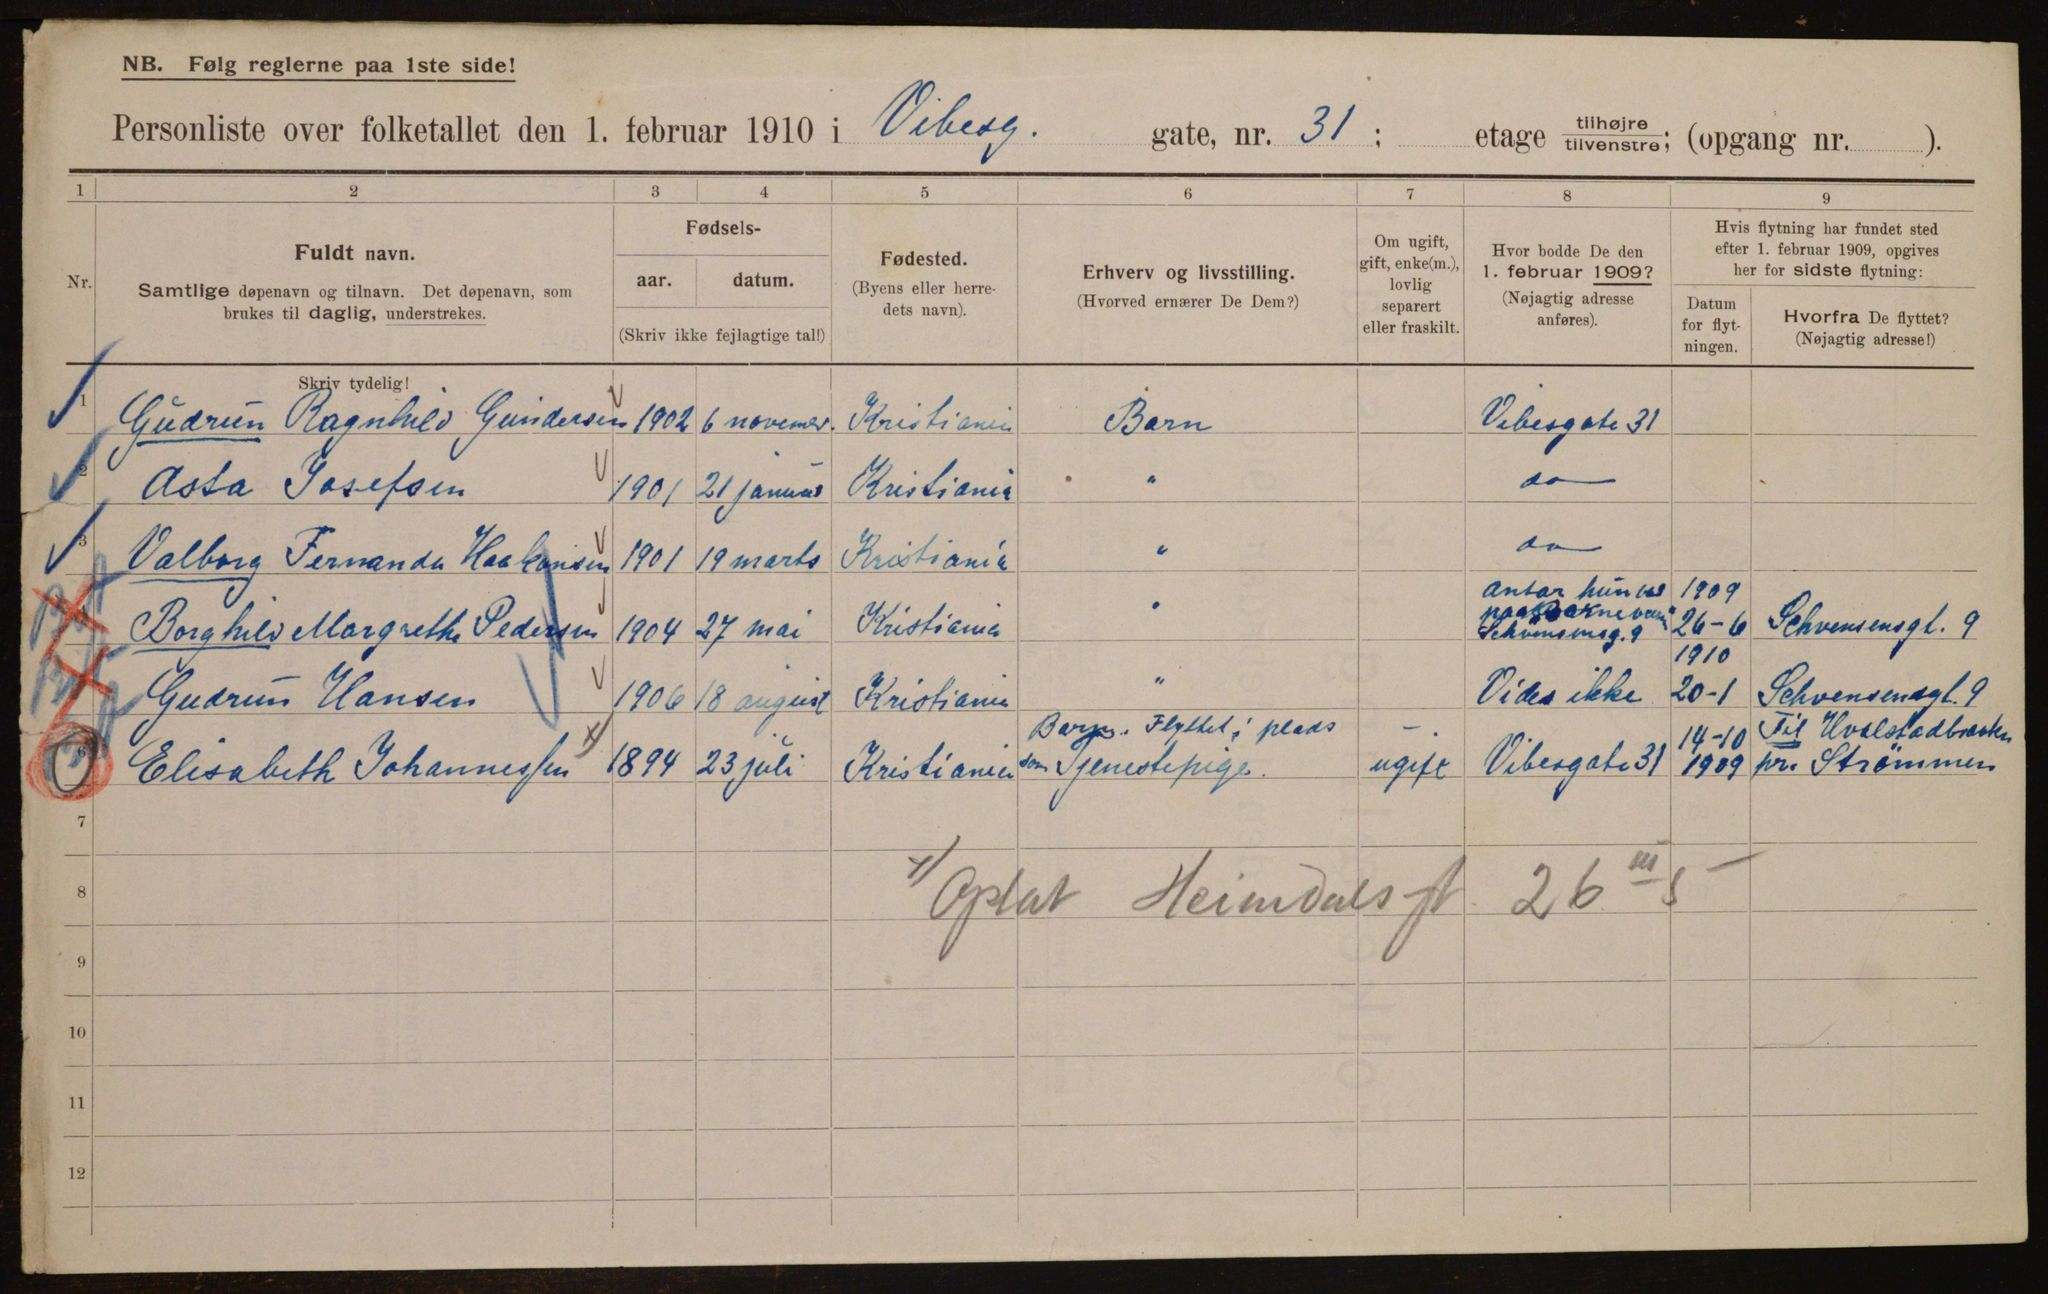 NB. Følg reglerne paa 1ste side!
Personliste over folketallet den 1. februar 1910 i Vibesg. gate, nr. 31; etage tilhøjre/tilvenstre; (opgang nr. ).
1 2 3 4 5 6 7 8 9
Nr.
Fuldt navn.
Samtlige døpenavn og tilnavn. Det døpenavn, som
brukes til daglig, understrekes.
Fødsels-
aar. datum.
(Skriv ikke fejlagtige tal!)
Fødested.
(Byens eller herre-
dets navn).
Erhverv og livsstilling.
(Hvorved ernærer De Dem?)
Om ugift,
gift, enke(m.),
lovlig
separert
eller fraskilt.
Hvor bodde De den
1. februar 1909?
(Nøjagtig adresse
anføres).
Hvis flytning har fundet sted
efter 1. februar 1909, opgives
her for sidste flytning:
Datum
for flyt-
ningen.
Hvorfra De flyttet?
(Nøjagtig adresse!)
Skriv tydelig!
1 Gudrun Ragnhild Gundersen 1902 6 novemer. Kristiania Barn Vibesgate 31
2 Asta Josefsen 1901 21 januar Kristiania " do
3 Valborg Fernanda Haakonsen 1901 19 marts Kristiania " do
4 Borghild Margrethe Pedersen 1904 27 mai Kristiania " antar hun var paa Schvensensg. 9 1909 26-6 Schvensensgt. 9
Gudrun Hansen 1906 18 august Kristiania " Vides ikke 1910 20-1 Schvensensgt. 9
6 Elisabeth Johannessen x) 1894 23 juli Kristiania Barn. Flyttet i plads som Tjenestepige. - ugift Vibesgate 31 14-10 1909 Til Hvalstadbakken pr. Strømmen
7
x) Optat Heimdals gt. 26 III s
8
9
10
11
12